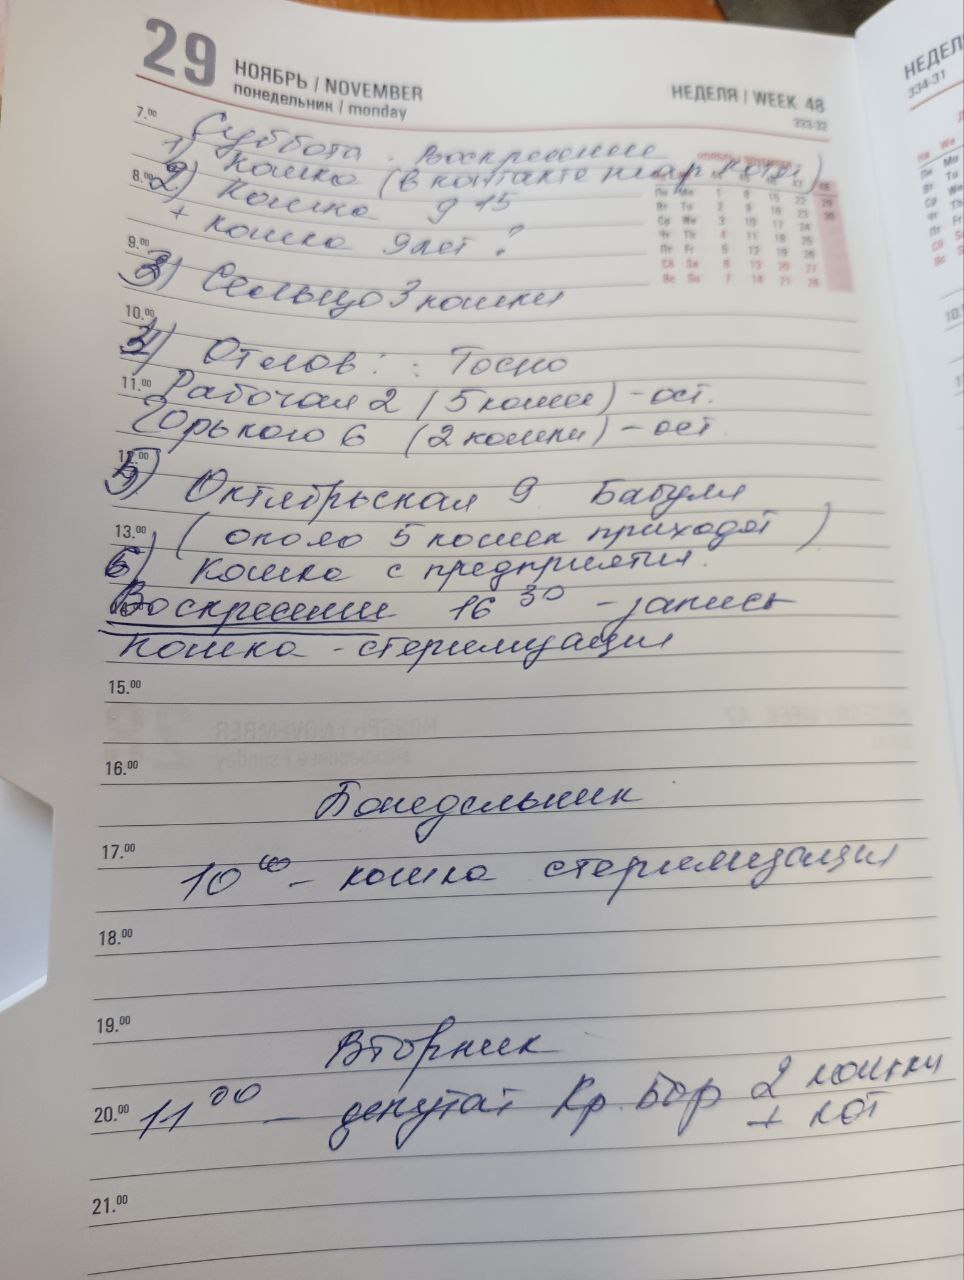 29
НОЯБРЬ / NOVEMBER
понедельник / monday
НЕДЕЛЯ / WEEK 48
333-32
7.00
Суббота. Воскресение
1) Кошка (в контакте пиар кота)
8.00
2) Кошка 9 15
+ кошка 9 лет?
9.00
3) Сельцо 3 кошки
10.00
4) Отлов: : Тосно
11.00
Рабочая 2 (5 кошек) - ост.
Горького 6 (2 кошки) - ост
12.00
5) Октябрьская 9 Бабуля
13.00
(около 5 кошек приходят)
6) кошка с предприятия.
Воскресение 16 30 - запись
кошка - стерилизация
15.00
16.00
Понедельник
17.00
10 00 - кошка стерилизация
18.00
19.00
Вторник
20.00
11 00 - депутат Кр. Бор 2 кошки
+ кот
21.00
НЕДЕЛ
334-31